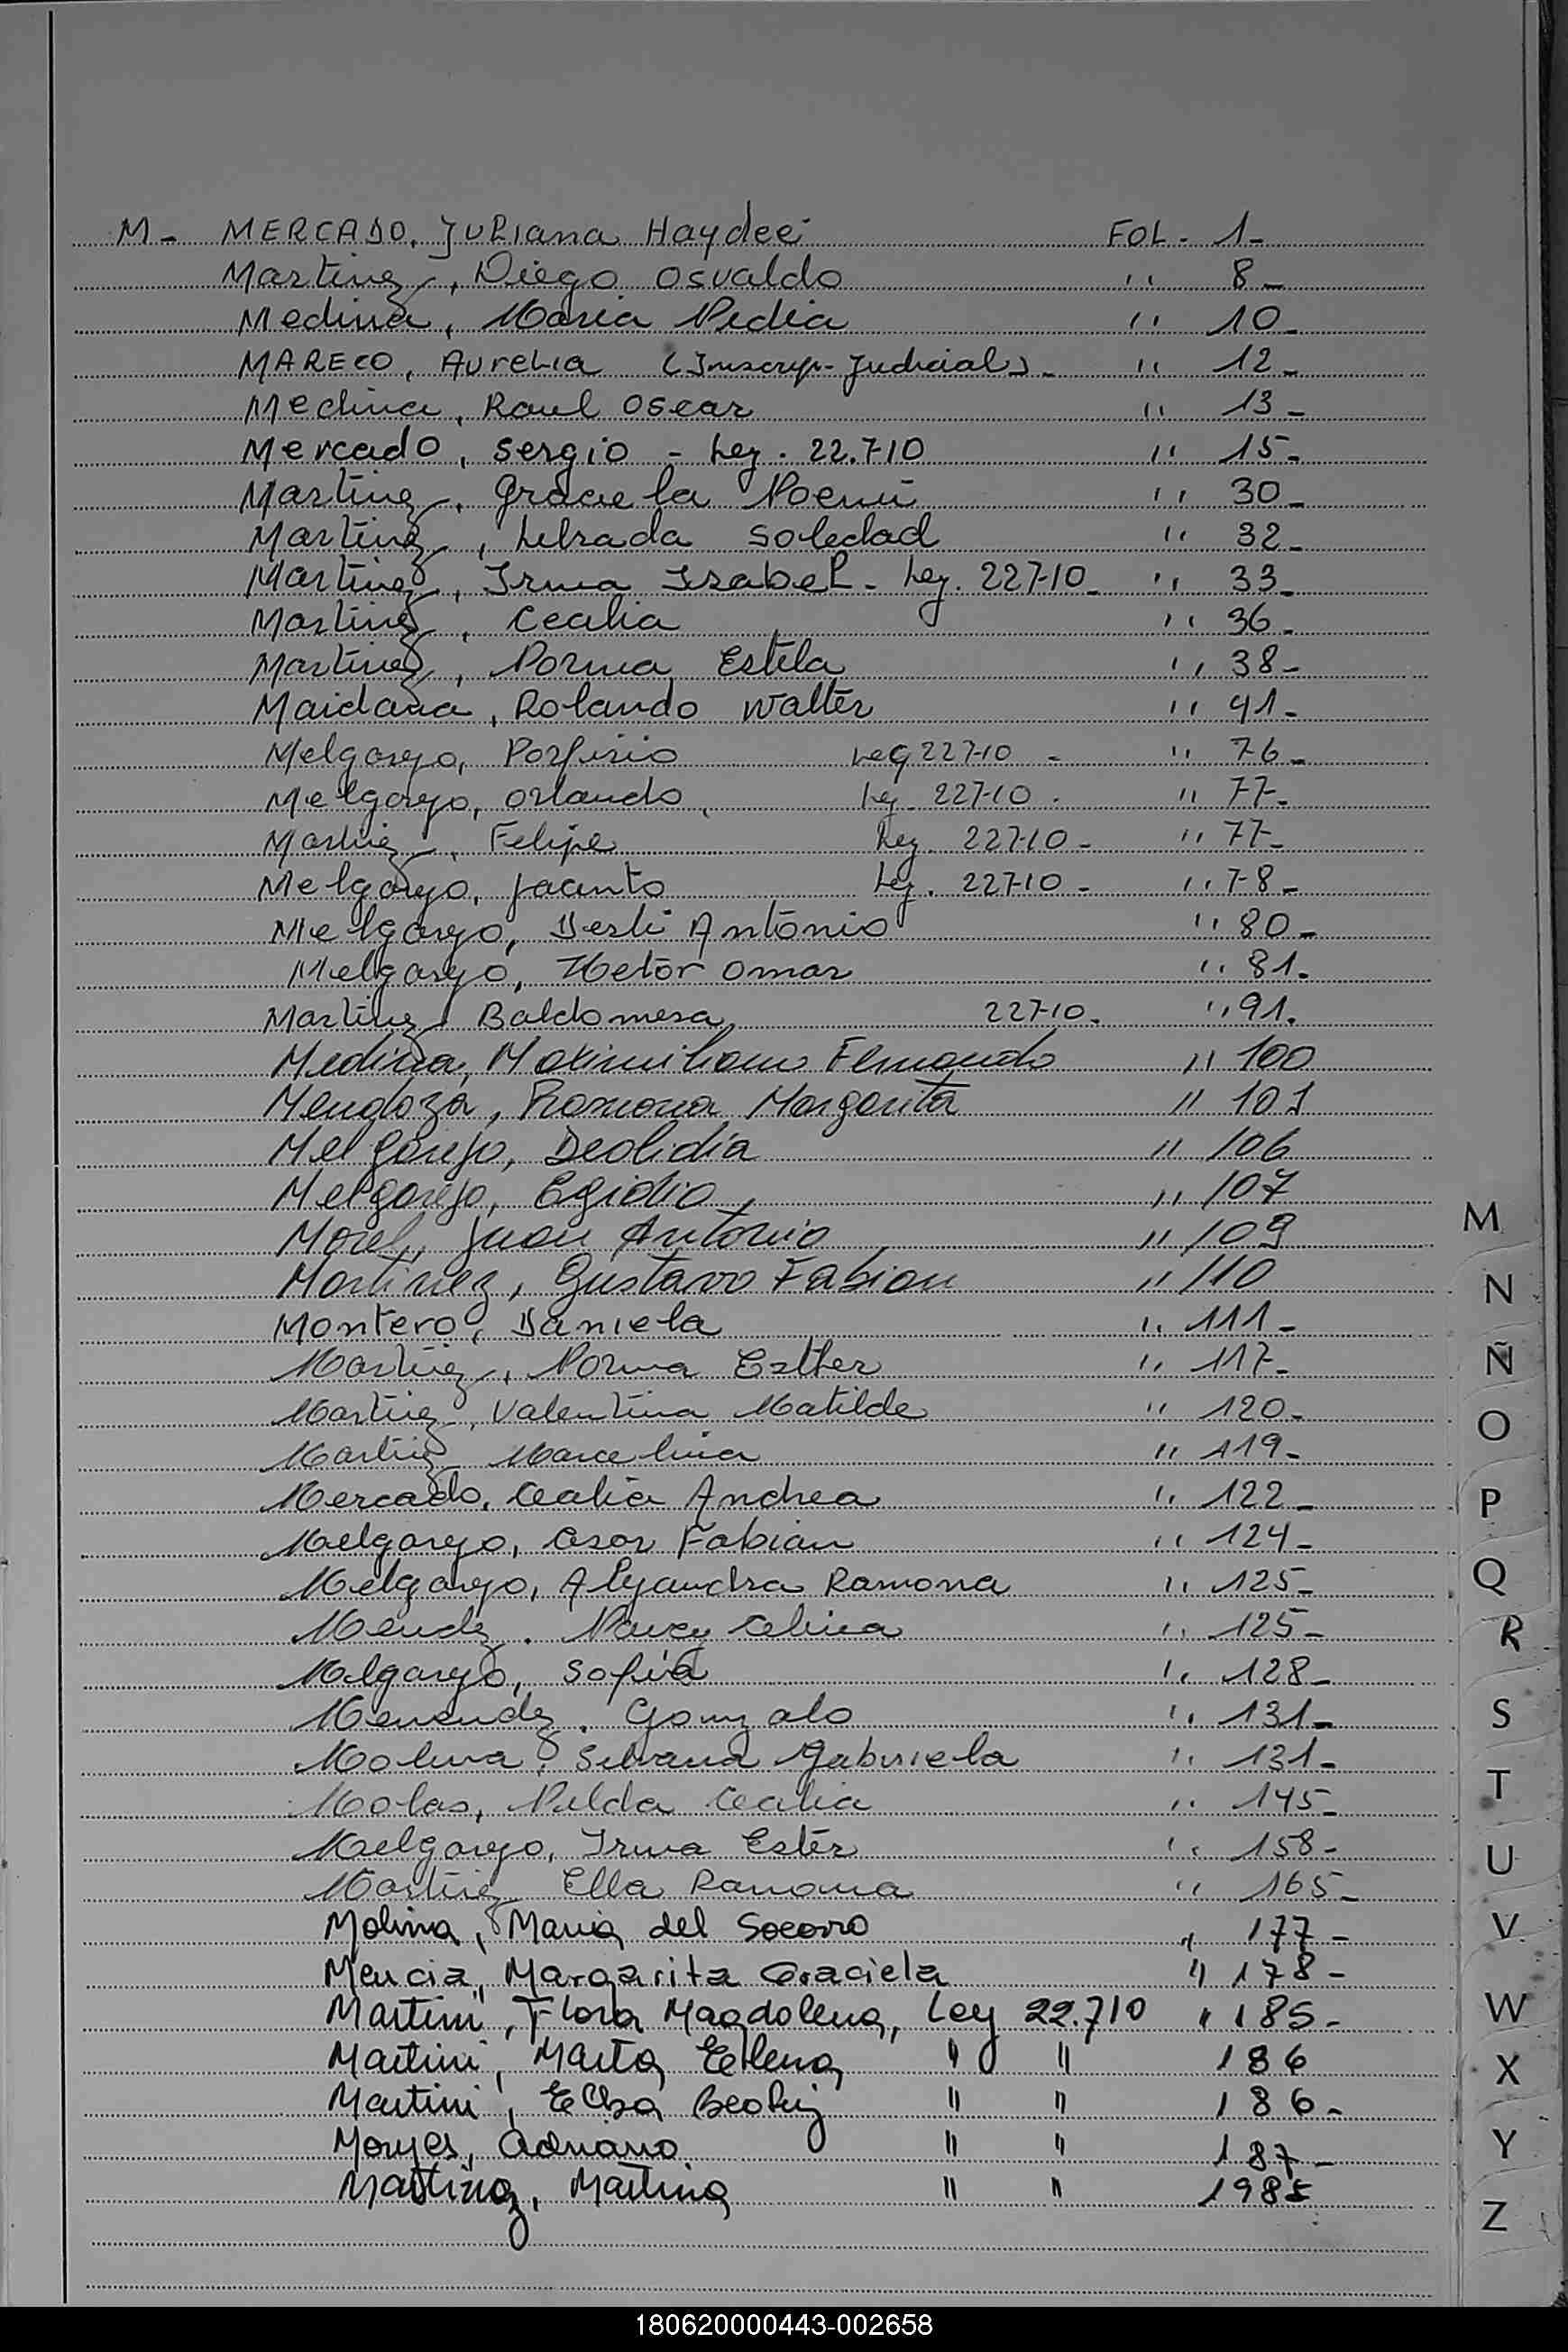 M- MERCADO, Juliana Haydeé FOL. 1-
Martinez, Diego Osvaldo " 8-
Medina, Maria Nidia " 10-
MARECO, Aurelia (Inscrip. Judicial)- " 12-
Medina, Raul Oscar " 13-
Mercado, Sergio - Ley. 22.710 " 15-
Martinez, Graciela Noemi " 30-
Martinez, Librada Soledad " 32-
Martinez, Irma Isabel - Ley. 22710- " 33-
Martinez, Cecilia " 36-
Martinez, Norma Estela " 38-
Maidana, Rolando Walter " 41-
Melgarejo, Porfirio Ley 22710 - " 76-
Melgarejo, Orlando, Ley. 22710. " 77-
Martinez, Felipe Ley. 22710- " 77-
Melgarejo, Jacinto Ley. 22710- " 78-
Melgarejo, Derli Antonio " 80-
Melgarejo, Hetor Omar " 81.
Martinez Baldomera 22710. " 91.
Medina, Maximiliano Fernando " 100
Mendoza, Ramona Margarita " 101
Melgarejo, Deolidia " 106
Melgarejo, Egidio " 107
Morel, Juan Antonio " 109
Martinez, Gustavo Fabian " 110
Montero, Daniela " 111-
Martinez, Norma Esther " 117-
Martinez, Valentina Matilde " 120-
Martinez Marcelina " 119-
Mercado, Cecilia Andrea " 122-
Melgarejo, Cesar Fabian " 124-
Melgarejo, Alejandra Ramona " 125-
Mendez, Nancy Celina " 125-
Melgarejo, Sofia " 128-
Menendez, Gonzalo " 131-
Molina, Silvana Gabriela " 131-
Molas, Nilda Cecilia " 145-
Melgarejo, Irma Ester " 158-
Martinez Ella Ramona " 165-
Molina, Maria del Socorro " 177-
Mencia, Margarita Graciela " 178-
Martini, Flora Magdalena, Ley 22.710 " 185-
Martini, Marta Etlena " " 186
Martini, Elba Beatriz " " 186-
Adriano " " 187-
Martinez, Martina " " 198
M
N
Ñ
O
P
Q
R
S
T
U
V
W
X
Y
Z
180620000443-002658